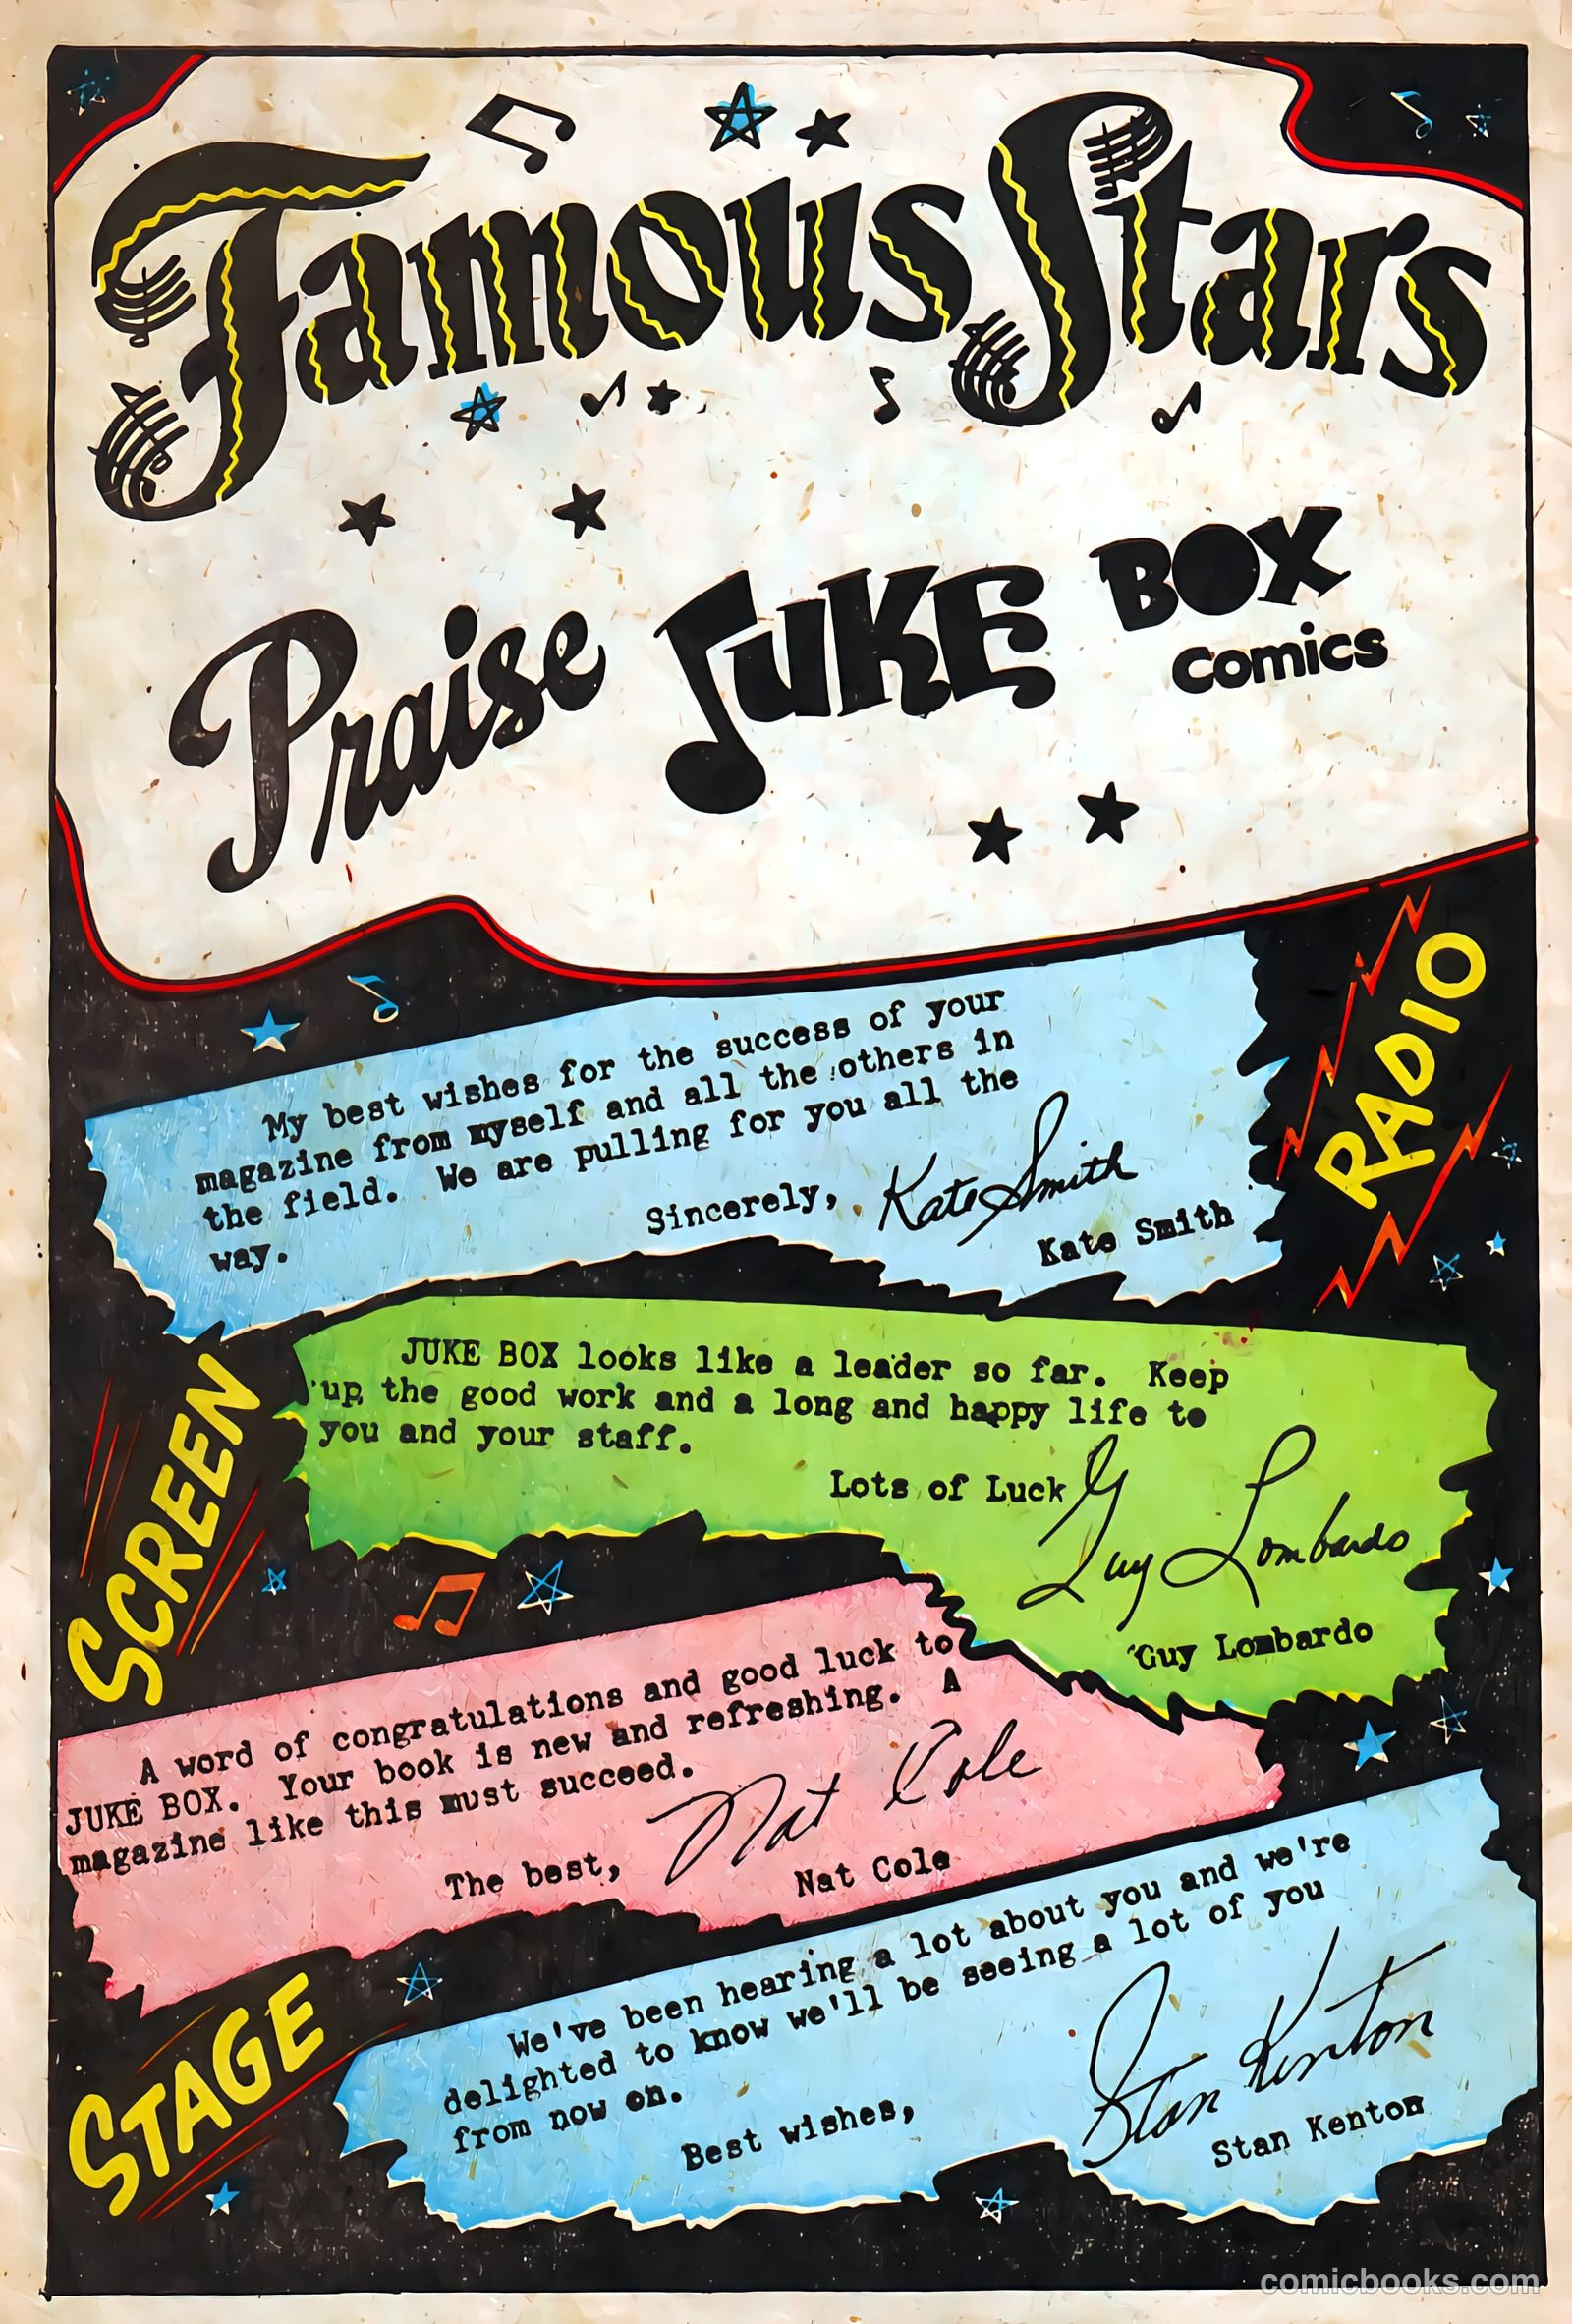 Famous Stars
Praise JUKE BOX
Comics
RADIO
My best wishes for the success of your
magazine from myself and all the others in
the field. We are pulling for you all the
way.
Sincerely, Kate Smith
Kate Smith
SCREEN
JUKE BOX looks like a leader so far. Keep
up the good work and a long and happy life to
you and your staff.
Lots of Luck
Guy Lombardo
Guy Lombardo
A word of congratulations and good luck to
JUKE BOX. Your book is new and refreshing. A
magazine like this must succeed.
The best, Nat Cole
Nat Cole
STAGE
We've been hearing a lot about you and we're
delighted to know we'll be seeing a lot of you
from now on.
Best wishes, Stan Kenton
Stan Kenton
comicbooks.com